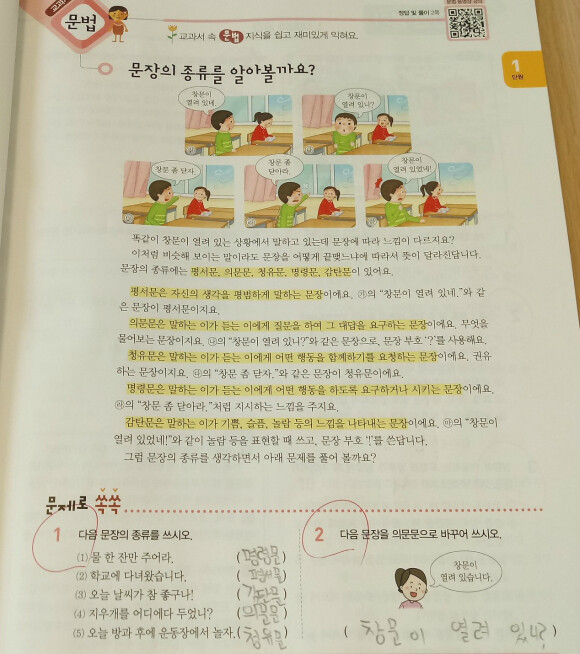 교과서
문법
교과서 속 문법 지식을 쉽고 재미있게 익혀요.
정답 및 풀이 2쪽
1
단원
문장의 종류를 알아볼까요?
창문이
열려 있네.
창문이
열려 있니?
창문 좀 닫자.
창문 좀
닫아라.
창문이
열려 있었네!
똑같이 창문이 열려 있는 상황에서 말하고 있는데 문장에 따라 느낌이 다르지요?
이처럼 비슷해 보이는 말이라도 문장을 어떻게 끝맺느냐에 따라서 뜻이 달라진답니다.
문장의 종류에는 평서문, 의문문, 청유문, 명령문, 감탄문이 있어요.
평서문은 자신의 생각을 평범하게 말하는 문장이에요. ㉮의 “창문이 열려 있네.”와 같
은 문장이 평서문이지요.
의문문은 말하는 이가 듣는 이에게 질문을 하여 그 대답을 요구하는 문장이에요. 무엇을
물어보는 문장이지요. ㉯의 “창문이 열려 있니?”와 같은 문장으로, 문장 부호 ‘?’를 사용해요.
청유문은 말하는 이가 듣는 이에게 어떤 행동을 함께하기를 요청하는 문장이에요. 권유
하는 문장이지요. ㉰의 “창문 좀 닫자.”와 같은 문장이 청유문이에요.
명령문은 말하는 이가 듣는 이에게 어떤 행동을 하도록 요구하거나 시키는 문장이에요.
㉱의 “창문 좀 닫아라.”처럼 지시하는 느낌을 주지요.
감탄문은 말하는 이가 기쁨, 슬픔, 놀람 등의 느낌을 나타내는 문장이에요. ㉲의 “창문이
열려 있었네!”와 같이 놀람 등을 표현할 때 쓰고, 문장 부호 ‘!’를 쓴답니다.
그럼 문장의 종류를 생각하면서 아래 문제를 풀어 볼까요?
문제로 쏙쏙
1 다음 문장의 종류를 쓰시오.
(1) 물 한 잔만 주어라. (명령문)
(2) 학교에 다녀왔습니다. (평서문)
(3) 오늘 날씨가 참 좋구나! (감탄문)
(4) 지우개를 어디에다 두었니? (의문문)
(5) 오늘 방과 후에 운동장에서 놀자. (청유문)
2 다음 문장을 의문문으로 바꾸어 쓰시오.
창문이
열려 있습니다.
( 창문이 열려 있니? )